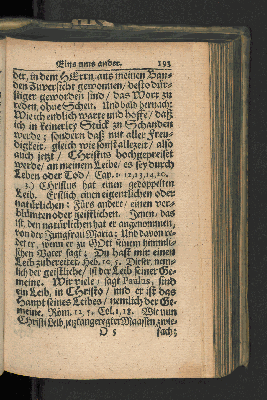 Eins ums ander. 193
der, in dem HErrn, aus meinen Ban-
den Zuversicht gewonnen, desto dür-
stiger geworden sind / das Wort zu
reden, ohne Scheu. Und bald hernach:
Wie ich endlich warte und hoffe / daß
ich in keinerley Stück zu Schanden
werde; sondern daß mit aller Freu-
digkeit, gleich wie sonst allezeit / also
auch jetzt / Christus hochgepreiset
werde / an meinem Leibe / es sey durch
Leben oder Tod / Cap. 1. 12, 13, 14, 20.
3.) Christus hat einen gedoppelten
Leib. Erstlich einen eigentlichen oder
natürlichen: Fürs andere / einen ver-
blümten oder geistlichen. Jenen, das
ist, den natürlichen hat er angenommen,
von der Jungfrau Maria: Und davon re-
det er, wenn er zu GOtt seinem himmli-
schen Vater sagt: Du hast mir einen
Leib zubereitet, Heb. 10, 5. Dieser, nem-
lich der geistliche / ist der Leib seiner Ge-
meine. Wir viele / sagt Paulus, sind
ein Leib, in Christo / und er ist das
Haupt seines Leibes / nemlich der Ge-
meine. Röm. 12, 5. Col. 1, 18. Wie nun
Christi Leib, jetztangeregter Maassen, zwie-
O 5 fach;